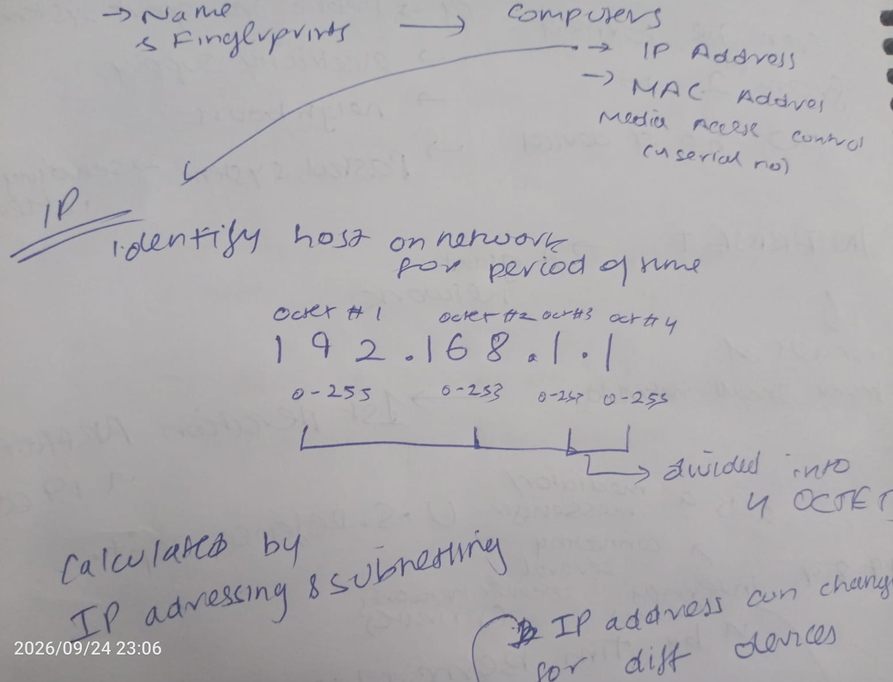 → Name
↳ Fingerprints → computers
→ IP Address
→ MAC Addres
Media Access control
(userial no)
IP
identify host on network
for period of time
Octet #1 octet #2 oct#3 oct#4
192.168.1.1
0-255 0-253 0-255
divided into
4 OCTET
Calculated by
IP adressing & subnetting
IP address can chang
for diff devices
2026/09/24 23:06